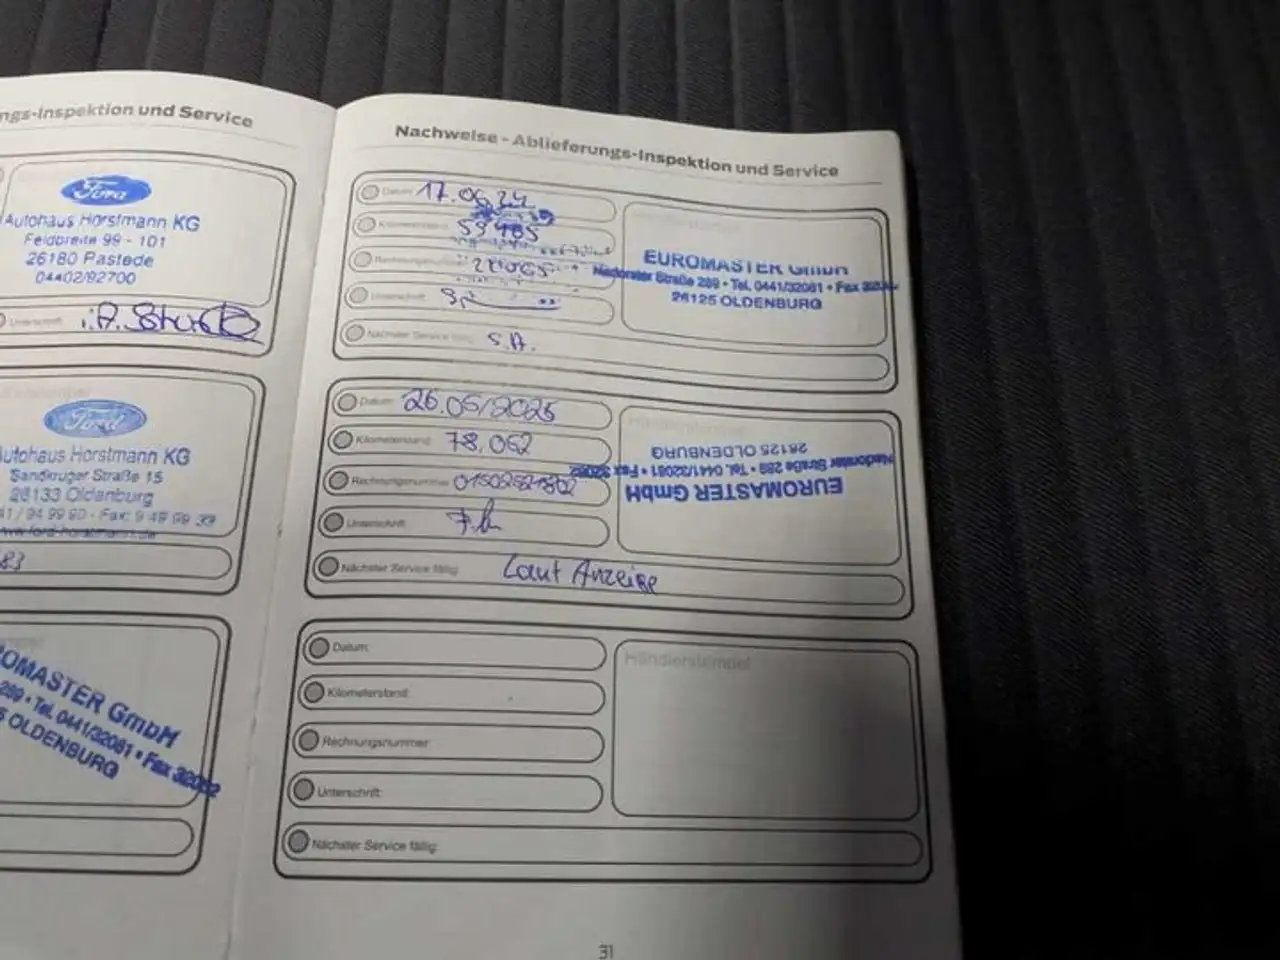 ngs-Inspektion und Service
Ford
Autohaus Horstmann KG
Feldbreite 99 - 101
26180 Rastede
04402/92700
Unterschrift:
Ford
Autohaus Horstmann KG
Sandkruger Straße 15
26133 Oldenburg
41 / 94 99 90 - Fax: 9 49 99 39
www.ford-horstmann.de
83
ROMASTER GmbH
289 • Tel. 0441/32081 • Fax 32082
5 OLDENBURG
Nachweise - Ablieferungs-Inspektion und Service
Datum: 17.06.24
Kilometerstand: 59485
Rechnungsnummer:
Unterschrift:
Nächster Service fällig: S.A.
EUROMASTER GmbH
Nadorster Straße 289 • Tel. 0441/32081 • Fax 32082
26125 OLDENBURG
Datum: 26.05/2025
Kilometerstand: 78.052
Rechnungsnummer: 01502521802
Unterschrift:
Nächster Service fällig: Laut Anzeige
Händlerstempel
EUROMASTER GmbH
Nadorster Straße 289 • Tel. 0441/32081 • Fax 32082
26125 OLDENBURG
Datum:
Kilometerstand:
Rechnungsnummer:
Unterschrift:
Nächster Service fällig:
Händlerstempel
31